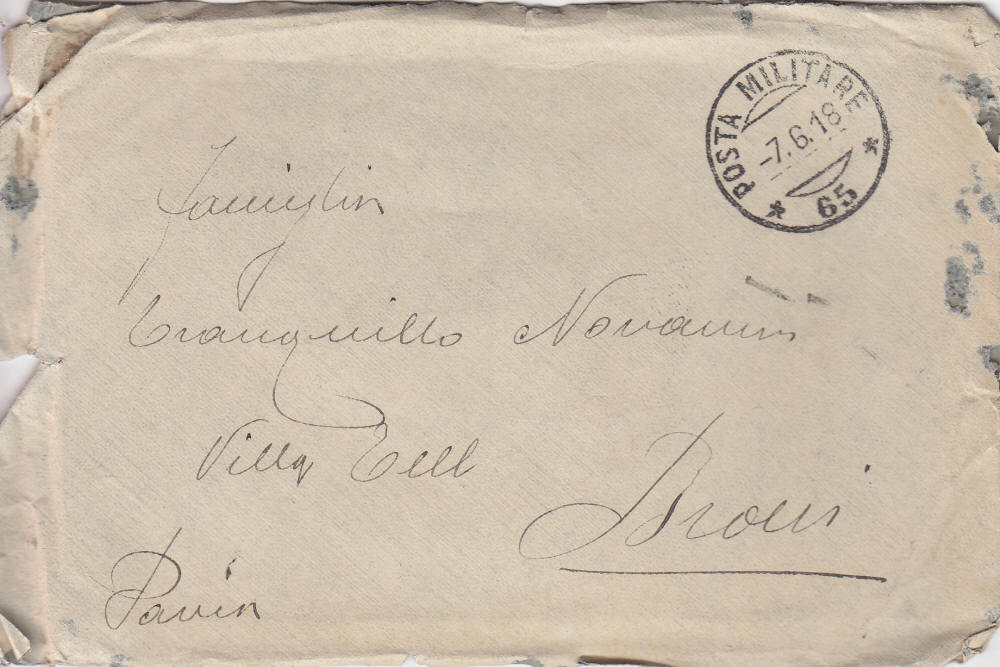 POSTA MILITARE
-7.6.18
65
Famiglia
Tranquillo Novarini
Villa Tell
Broni
Pavia